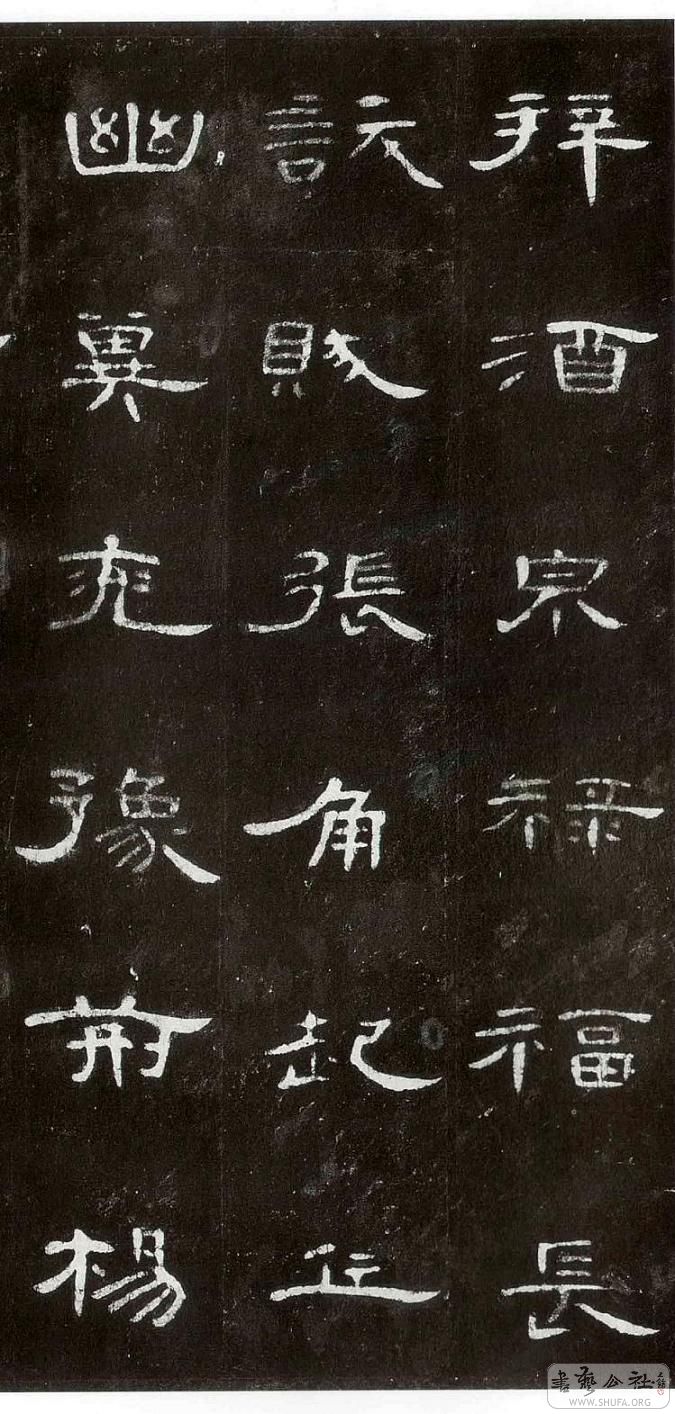 拜酒泉禄福長
訞賊張角起兵
幽冀兖豫荊楊
書藝公社
WWW.SHUFA.ORG